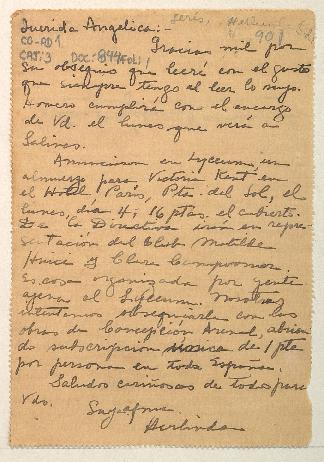 Querida Angélica:-
CO-AD1
CAT:3 DOC:844 FOL:1
901
Gracias mil por
su obsequio que leeré con el gusto
que siempre tengo al leer lo suyo.
Homero cumplirá con el encargo
de Vd. el lunes, que verá a
Salinas.
Anunciaron en Lyceum, un
almuerzo para Victoria Kent en
el Hotel París, Pta. del Sol, el
lunes, día 4; 16 ptas. el cubierto.
De la Directiva irán en repre-
sentación del Club Matilde
Huici y Clara Campoamor.
Es cosa organizada por gente
ajena al Lyceum. Nosotras
intentamos obsequiarla con las
obras de Concepción Arenal, abrien-
do subscripción de 1 pta
por persona en toda España.
Saludos cariñosos de todos para
Vds.
Suya afma.
Herlinda